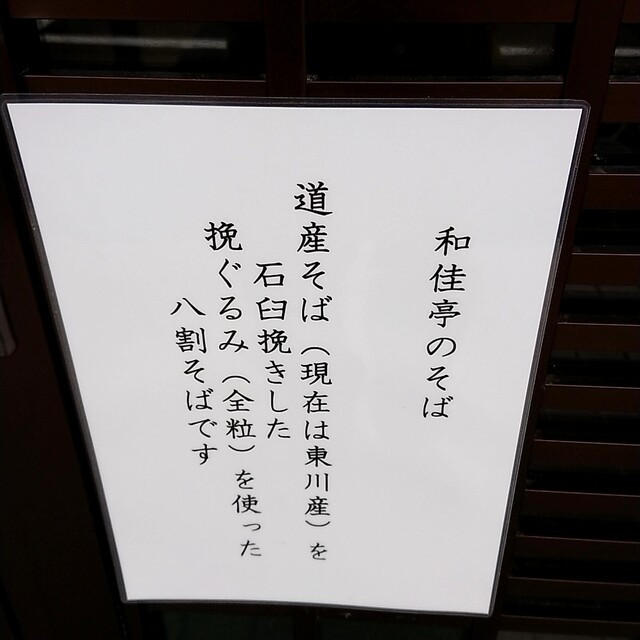 和佳亭のそば
道産そば（現在は東川産）を
石臼挽きした
挽ぐるみ（全粒）を使った
八割そばです